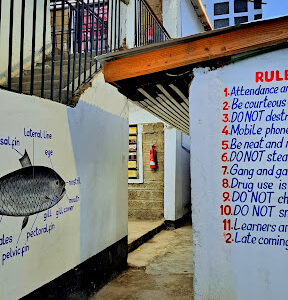 Lateral line
sal fin
eye
nostril
mouth
gill cover
gill
pectoral fin
pelvic fin
ales
RULE
1. Attendance ar
2. Be courteous
3. DO NOT destr
4. Mobile phone
5. Be neat and r
6. DO NOT stea
7. Gang and ga
8. Drug use is
9. DO NOT ch
10. DO NOT sm
11. Learners ar
2. Late coming